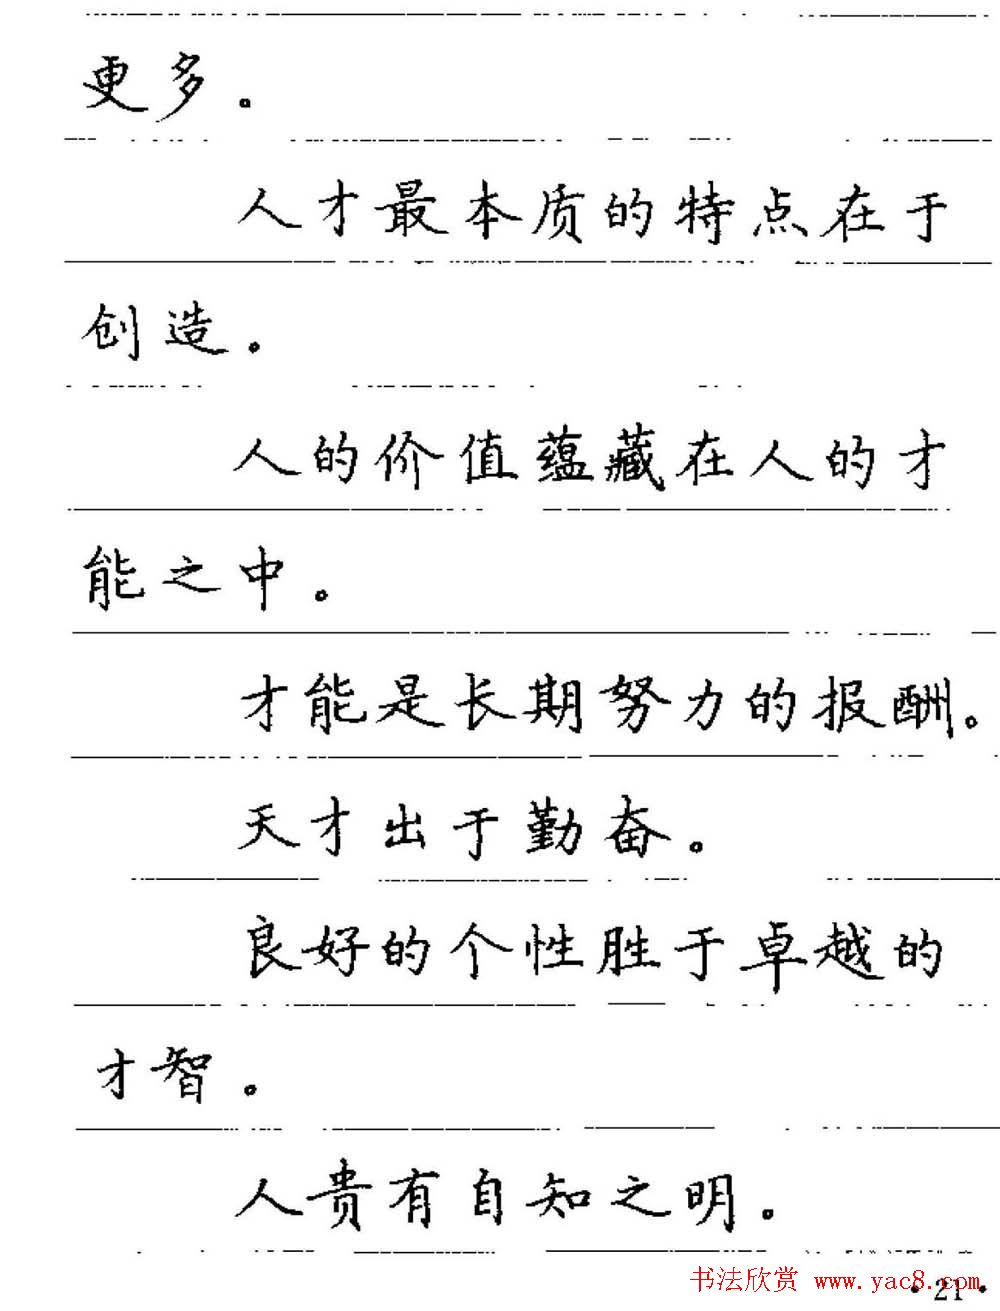 更多。
人才最本质的特点在于
创造。
人的价值蕴藏在人的才
能之中。
才能是长期努力的报酬。
天才出于勤奋。
良好的个性胜于卓越的
才智。
人贵有自知之明。
书法欣赏 www.yac8.com
·21·